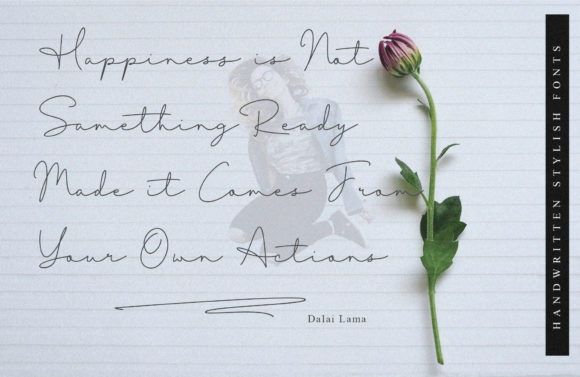 Happiness is Not
Something Ready
Made it Comes From
Your Own Actions
Dalai Lama
HANDWRITTEN STYLISH FONTS